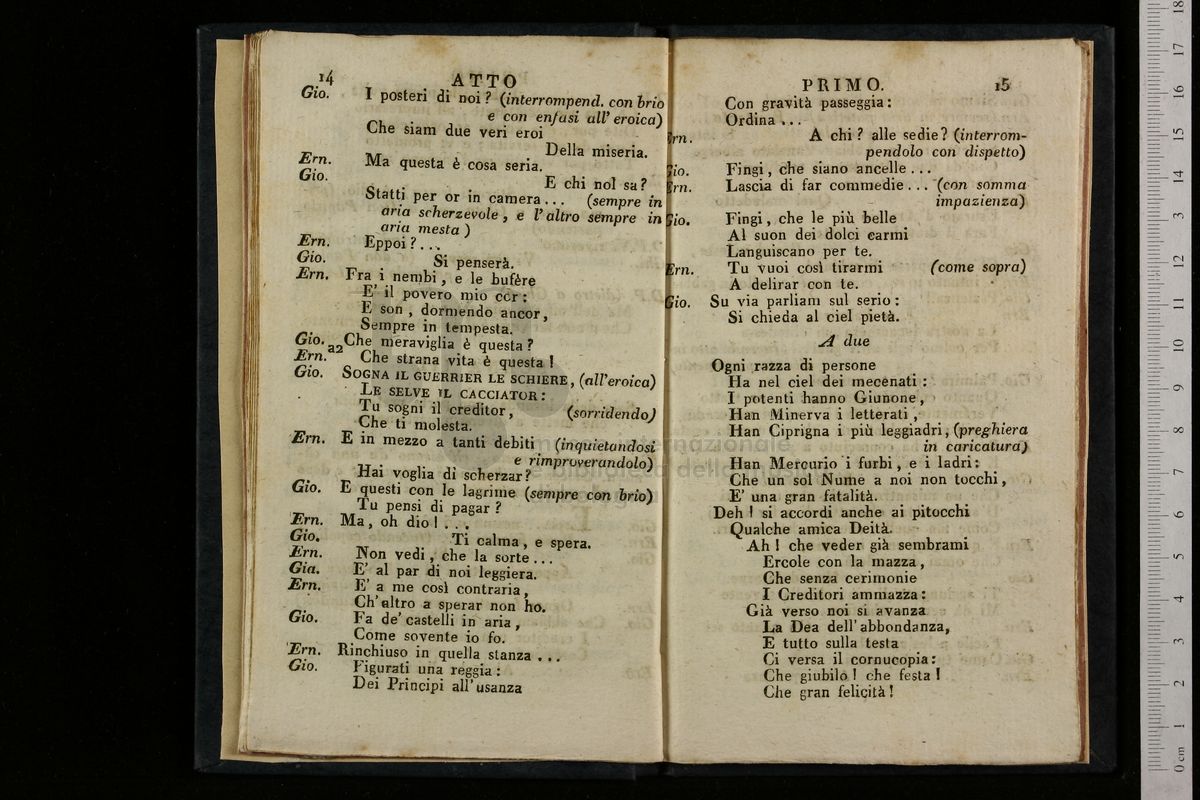 14 ATTO
Gio. I posteri di noi? (interrompend. con brio
e con enfasi all'eroica)
Che siam due veri eroi
Della miseria.
Ern. Ma questa è cosa seria.
Gio. E chi nol sa?
Statti per or in camera... (sempre in
aria scherzevole, e l'altro sempre in
aria mesta)
Ern. Eppoi?...
Gio. Si penserà.
Ern. Fra i nembi, e le bufère
E' il povero mio cor:
E son, dormendo ancor,
Sempre in tempesta.
Gio. a2 Che meraviglia è questa?
Ern. Che strana vita è questa!
Gio. SOGNA IL GUERRIER LE SCHIERE, (all'eroica)
LE SELVE IL CACCIATOR:
Tu sogni il creditor, (sorridendo)
Che ti molesta.
Ern. E in mezzo a tanti debiti (inquietandosi
e rimproverandolo)
Hai voglia di scherzar?
Gio. E questi con le lagrime (sempre con brio)
Tu pensi di pagar?
Ern. Ma, oh dio!...
Gio. Ti calma, e spera.
Ern. Non vedi, che la sorte...
Gia. E' al par di noi leggiera.
Ern. E' a me così contraria,
Ch'altro a sperar non ho.
Gio. Fa de' castelli in aria,
Come sovente io fo.
Ern. Rinchiuso in quella stanza...
Gio. Figurati una reggia:
Dei Principi all'usanza
PRIMO. 15
Con gravità passeggia:
Ordina...
Ern. A chi? alle sedie? (interrom-
pendolo con dispetto)
Gio. Fingi, che siano ancelle...
Ern. Lascia di far commedie... (con somma
impazienza)
Gio. Fingi, che le più belle
Al suon dei dolci carmi
Languiscano per te.
Ern. Tu vuoi così tirarmi (come sopra)
A delirar con te.
Gio. Su via parliam sul serio:
Si chieda al ciel pietà.
A due
Ogni razza di persone
Ha nel ciel dei mecenati:
I potenti hanno Giunone,
Han Minerva i letterati,
Han Ciprigna i più leggiadri, (preghiera
in caricatura)
Han Mercurio i furbi, e i ladri:
Che un sol Nume a noi non tocchi,
E' una gran fatalità.
Deh! si accordi anche ai pitocchi
Qualche amica Deità.
Ah! che veder già sembrami
Ercole con la mazza,
Che senza cerimonie
I Creditori ammazza:
Già verso noi si avanza
La Dea dell'abbondanza,
E tutto sulla testa
Ci versa il cornucopia:
Che giubilo! che festa!
Che gran felicità!